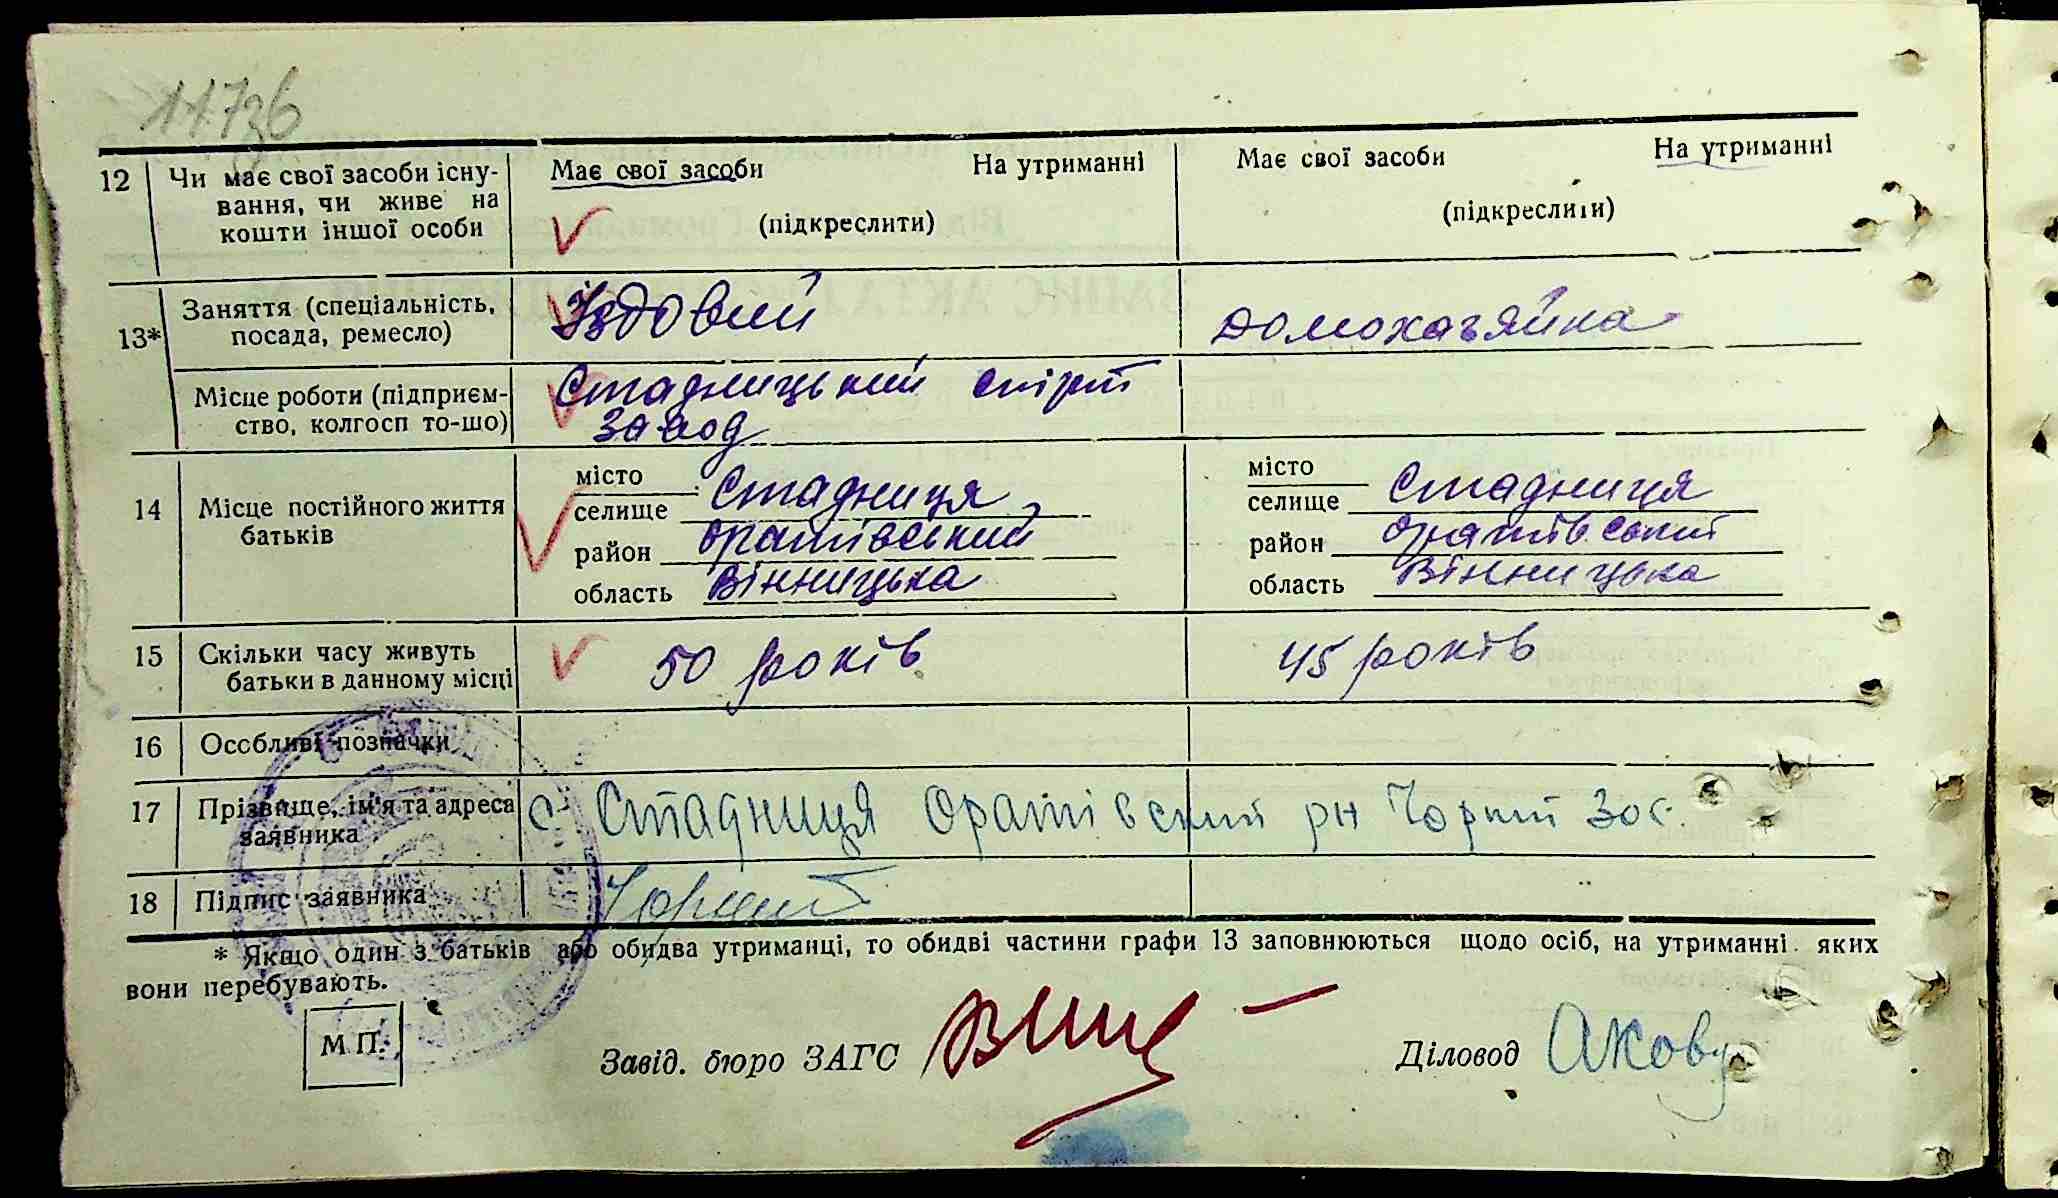 11736
12 Чи має свої засоби існу- Має свої засоби На утриманні Має свої засоби На утриманні
вання, чи живе на
кошти іншої особи (підкреслити) (підкреслити)
13* Заняття (спеціальність, Їздовий домохазяйка
посада, ремесло)
Місце роботи (підприєм- Стадницький спірт
ство, колгосп то-що) завод
місто місто
14 Місце постійного життя селище Стадниця селище Стадниця
батьків район Оратівський район Оратівський
область Вінницька область Вінницька
15 Скільки часу живуть 50 років 45 років
батьки в данному місці
16 Особливі позначки
17 Прізвище, ім'я та адреса с. Стадниця Оратівский рн Чорний Зос.
заявника
18 Підпис заявника Чорний
* Якщо один з батьків або обидва утриманці, то обидві частини графи 13 заповнюються щодо осіб, на утриманні яких
вони перебувають.
М.П. Завід. бюро ЗАГС Діловод